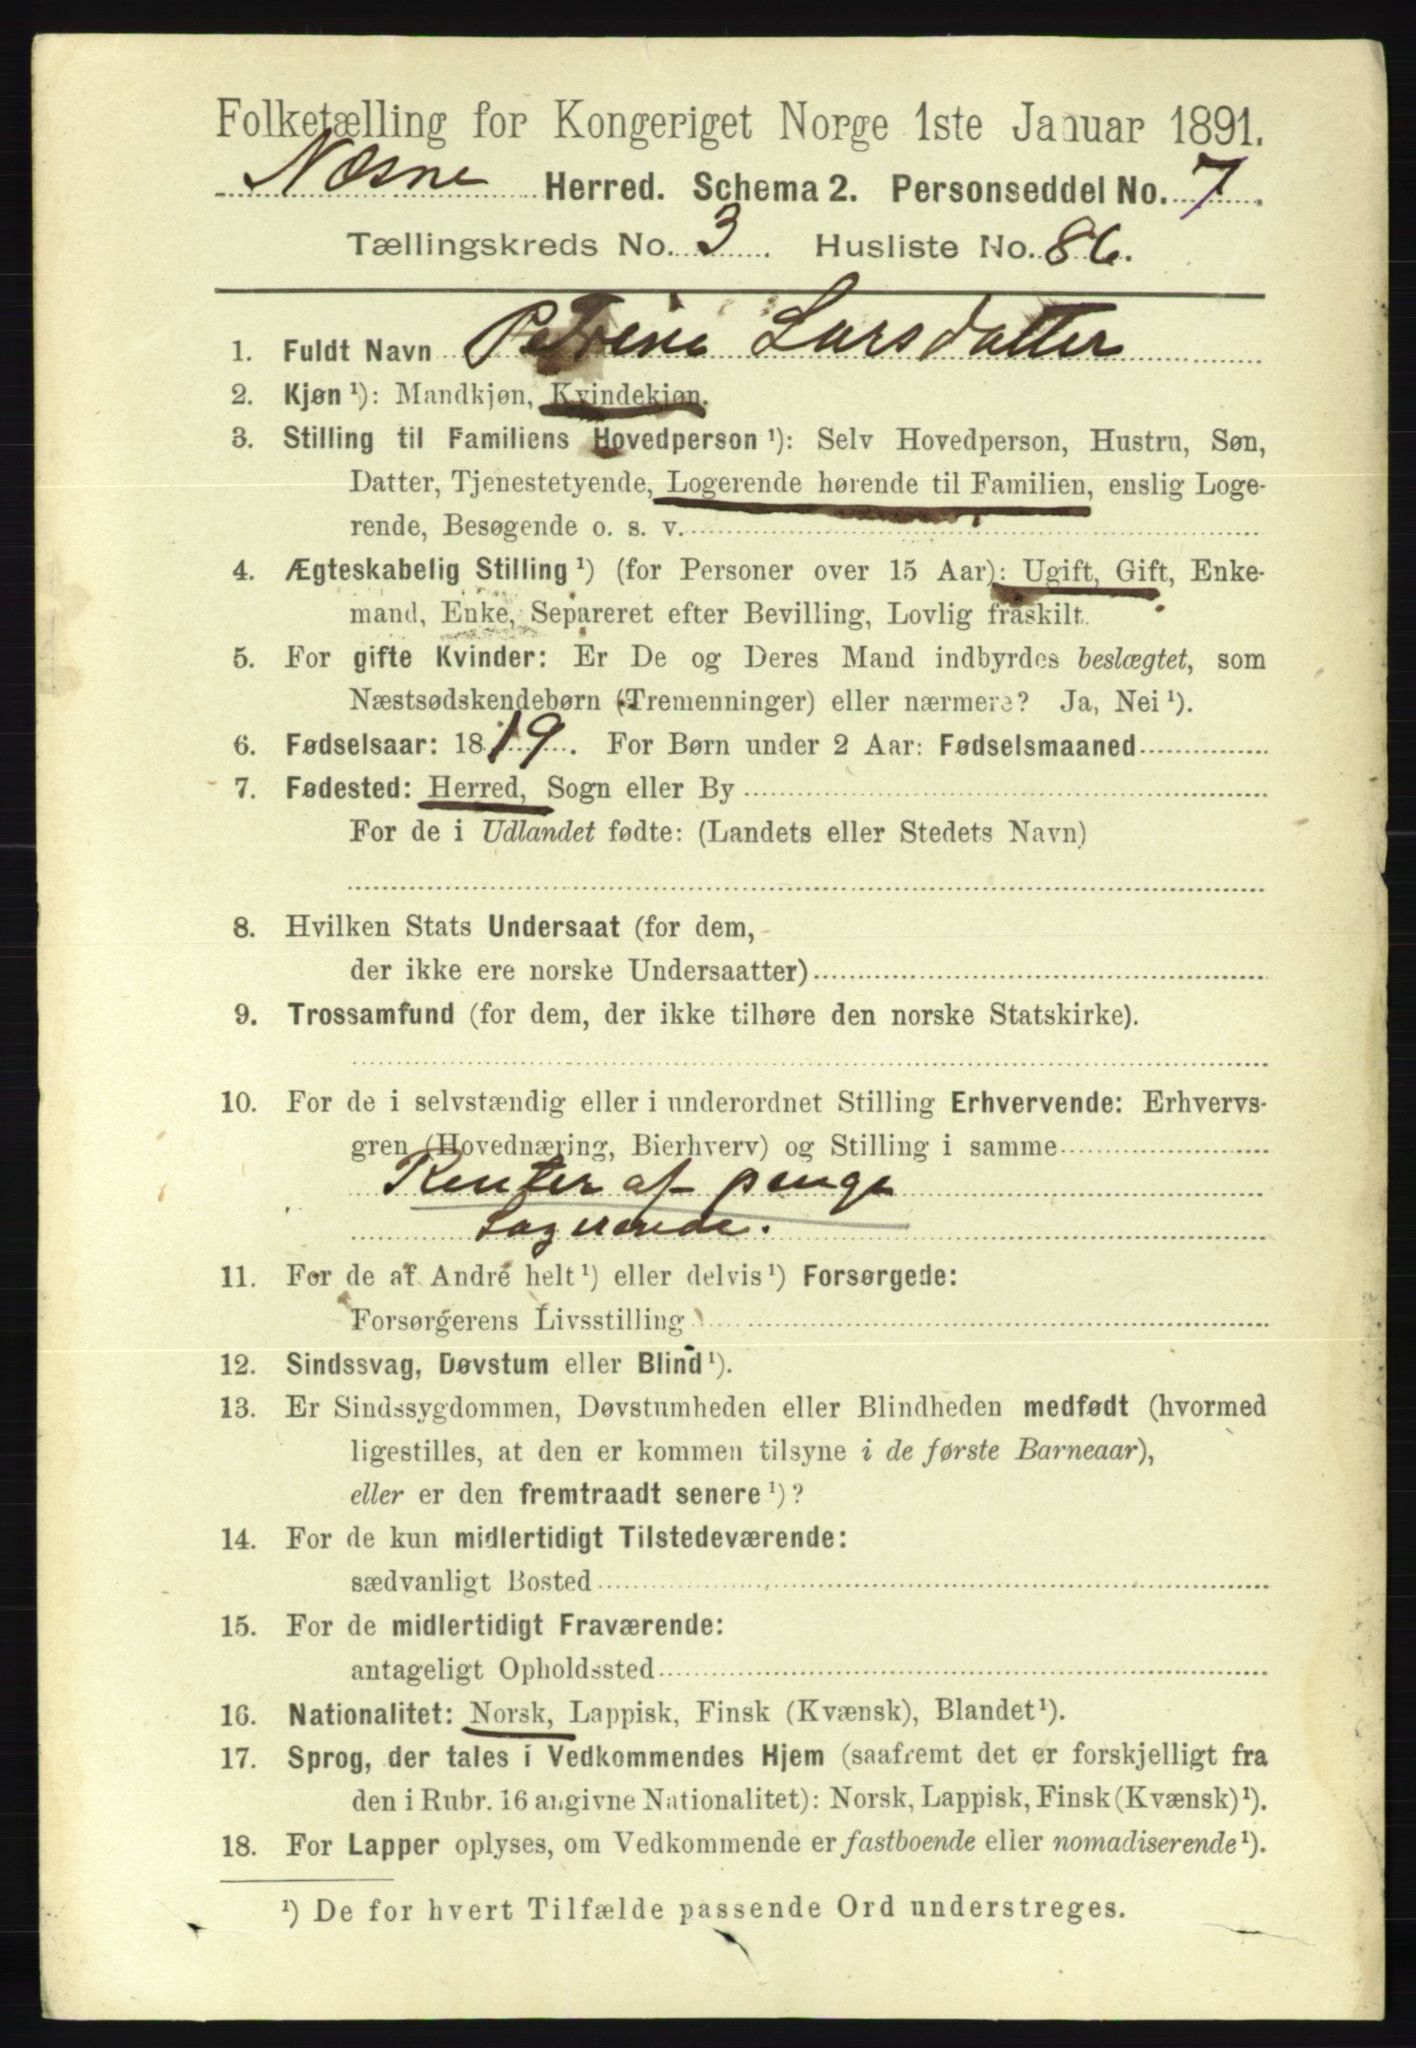 Folketælling for Kongeriget Norge 1ste Januar 1891.
Næsne Herred. Schema 2. Personseddel No. 7.
Tællingskreds No. 3. Husliste No. 86.
1. Fuldt Navn Petrine Larsdatter
2. Kjøn ¹): Mandkjøn, Kvindekjøn.
3. Stilling til Familiens Hovedperson ¹): Selv Hovedperson, Hustru, Søn,
Datter, Tjenestetyende, Logerende hørende til Familien, enslig Loge-
rende, Besøgende o. s. v.
4. Ægteskabelig Stilling ¹) (for Personer over 15 Aar): Ugift, Gift, Enke-
mand, Enke, Separeret efter Bevilling, Lovlig fraskilt.
5. For gifte Kvinder: Er De og Deres Mand indbyrdes beslægtet, som
Næstsødskendebørn (Tremenninger) eller nærmere? Ja, Nei ¹).
6. Fødselsaar: 1819. For Børn under 2 Aar: Fødselsmaaned
7. Fødested: Herred, Sogn eller By
For de i Udlandet fødte: (Landets eller Stedets Navn)
8. Hvilken Stats Undersaat (for dem,
der ikke ere norske Undersaatter)
9. Trossamfund (for dem, der ikke tilhøre den norske Statskirke).
10. For de i selvstændig eller i underordnet Stilling Erhvervende: Erhvervs-
gren (Hovednæring, Bierhverv) og Stilling i samme
Renter af penge
Logerende.
11. For de af Andre helt ¹) eller delvis ¹) Forsørgede:
Forsørgerens Livsstilling
12. Sindssvag, Døvstum eller Blind ¹).
13. Er Sindssygdommen, Døvstumheden eller Blindheden medfødt (hvormed
ligestilles, at den er kommen tilsyne i de første Barneaar),
eller er den fremtraadt senere ¹)?
14. For de kun midlertidigt Tilstedeværende:
sædvanligt Bosted
15. For de midlertidigt Fraværende:
antageligt Opholdssted
16. Nationalitet: Norsk, Lappisk, Finsk (Kvænsk), Blandet ¹).
17. Sprog, der tales i Vedkommendes Hjem (saafremt det er forskjelligt fra
den i Rubr. 16 angivne Nationalitet): Norsk, Lappisk, Finsk (Kvænsk) ¹).
18. For Lapper oplyses, om Vedkommende er fastboende eller nomadiserende ¹).
¹) De for hvert Tilfælde passende Ord understreges.